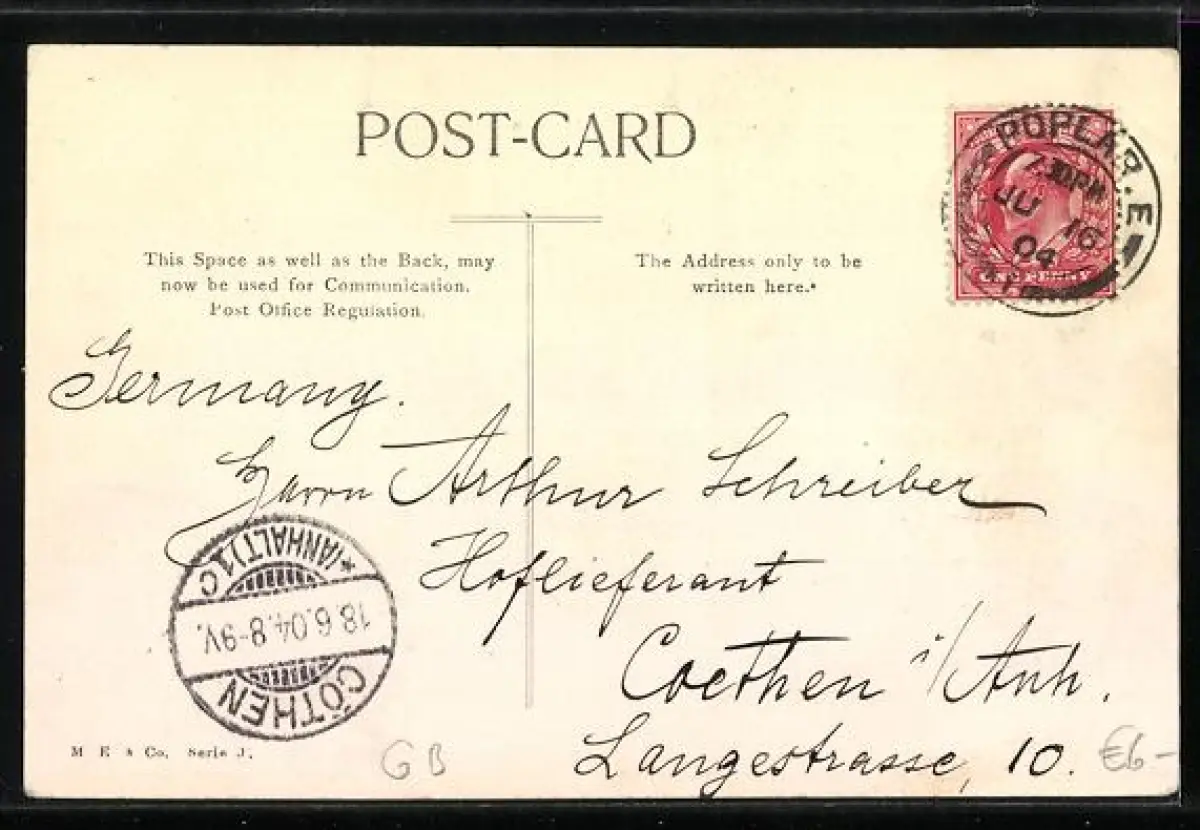 POST-CARD
This Space as well as the Back, may
now be used for Communication.
Post Office Regulation.
The Address only to be
written here.
POPLAR. E
7.30PM
JU 16
04
ONE PENNY
Germany.
Herrn Arthur Schreiber
Hoflieferant
Coethen i/Anh.
Langestrasse, 10.
CÖTHEN
18.6.04.8-9V.
*(ANHALT)1c
M E & Co. Serie J.
GB
€6-